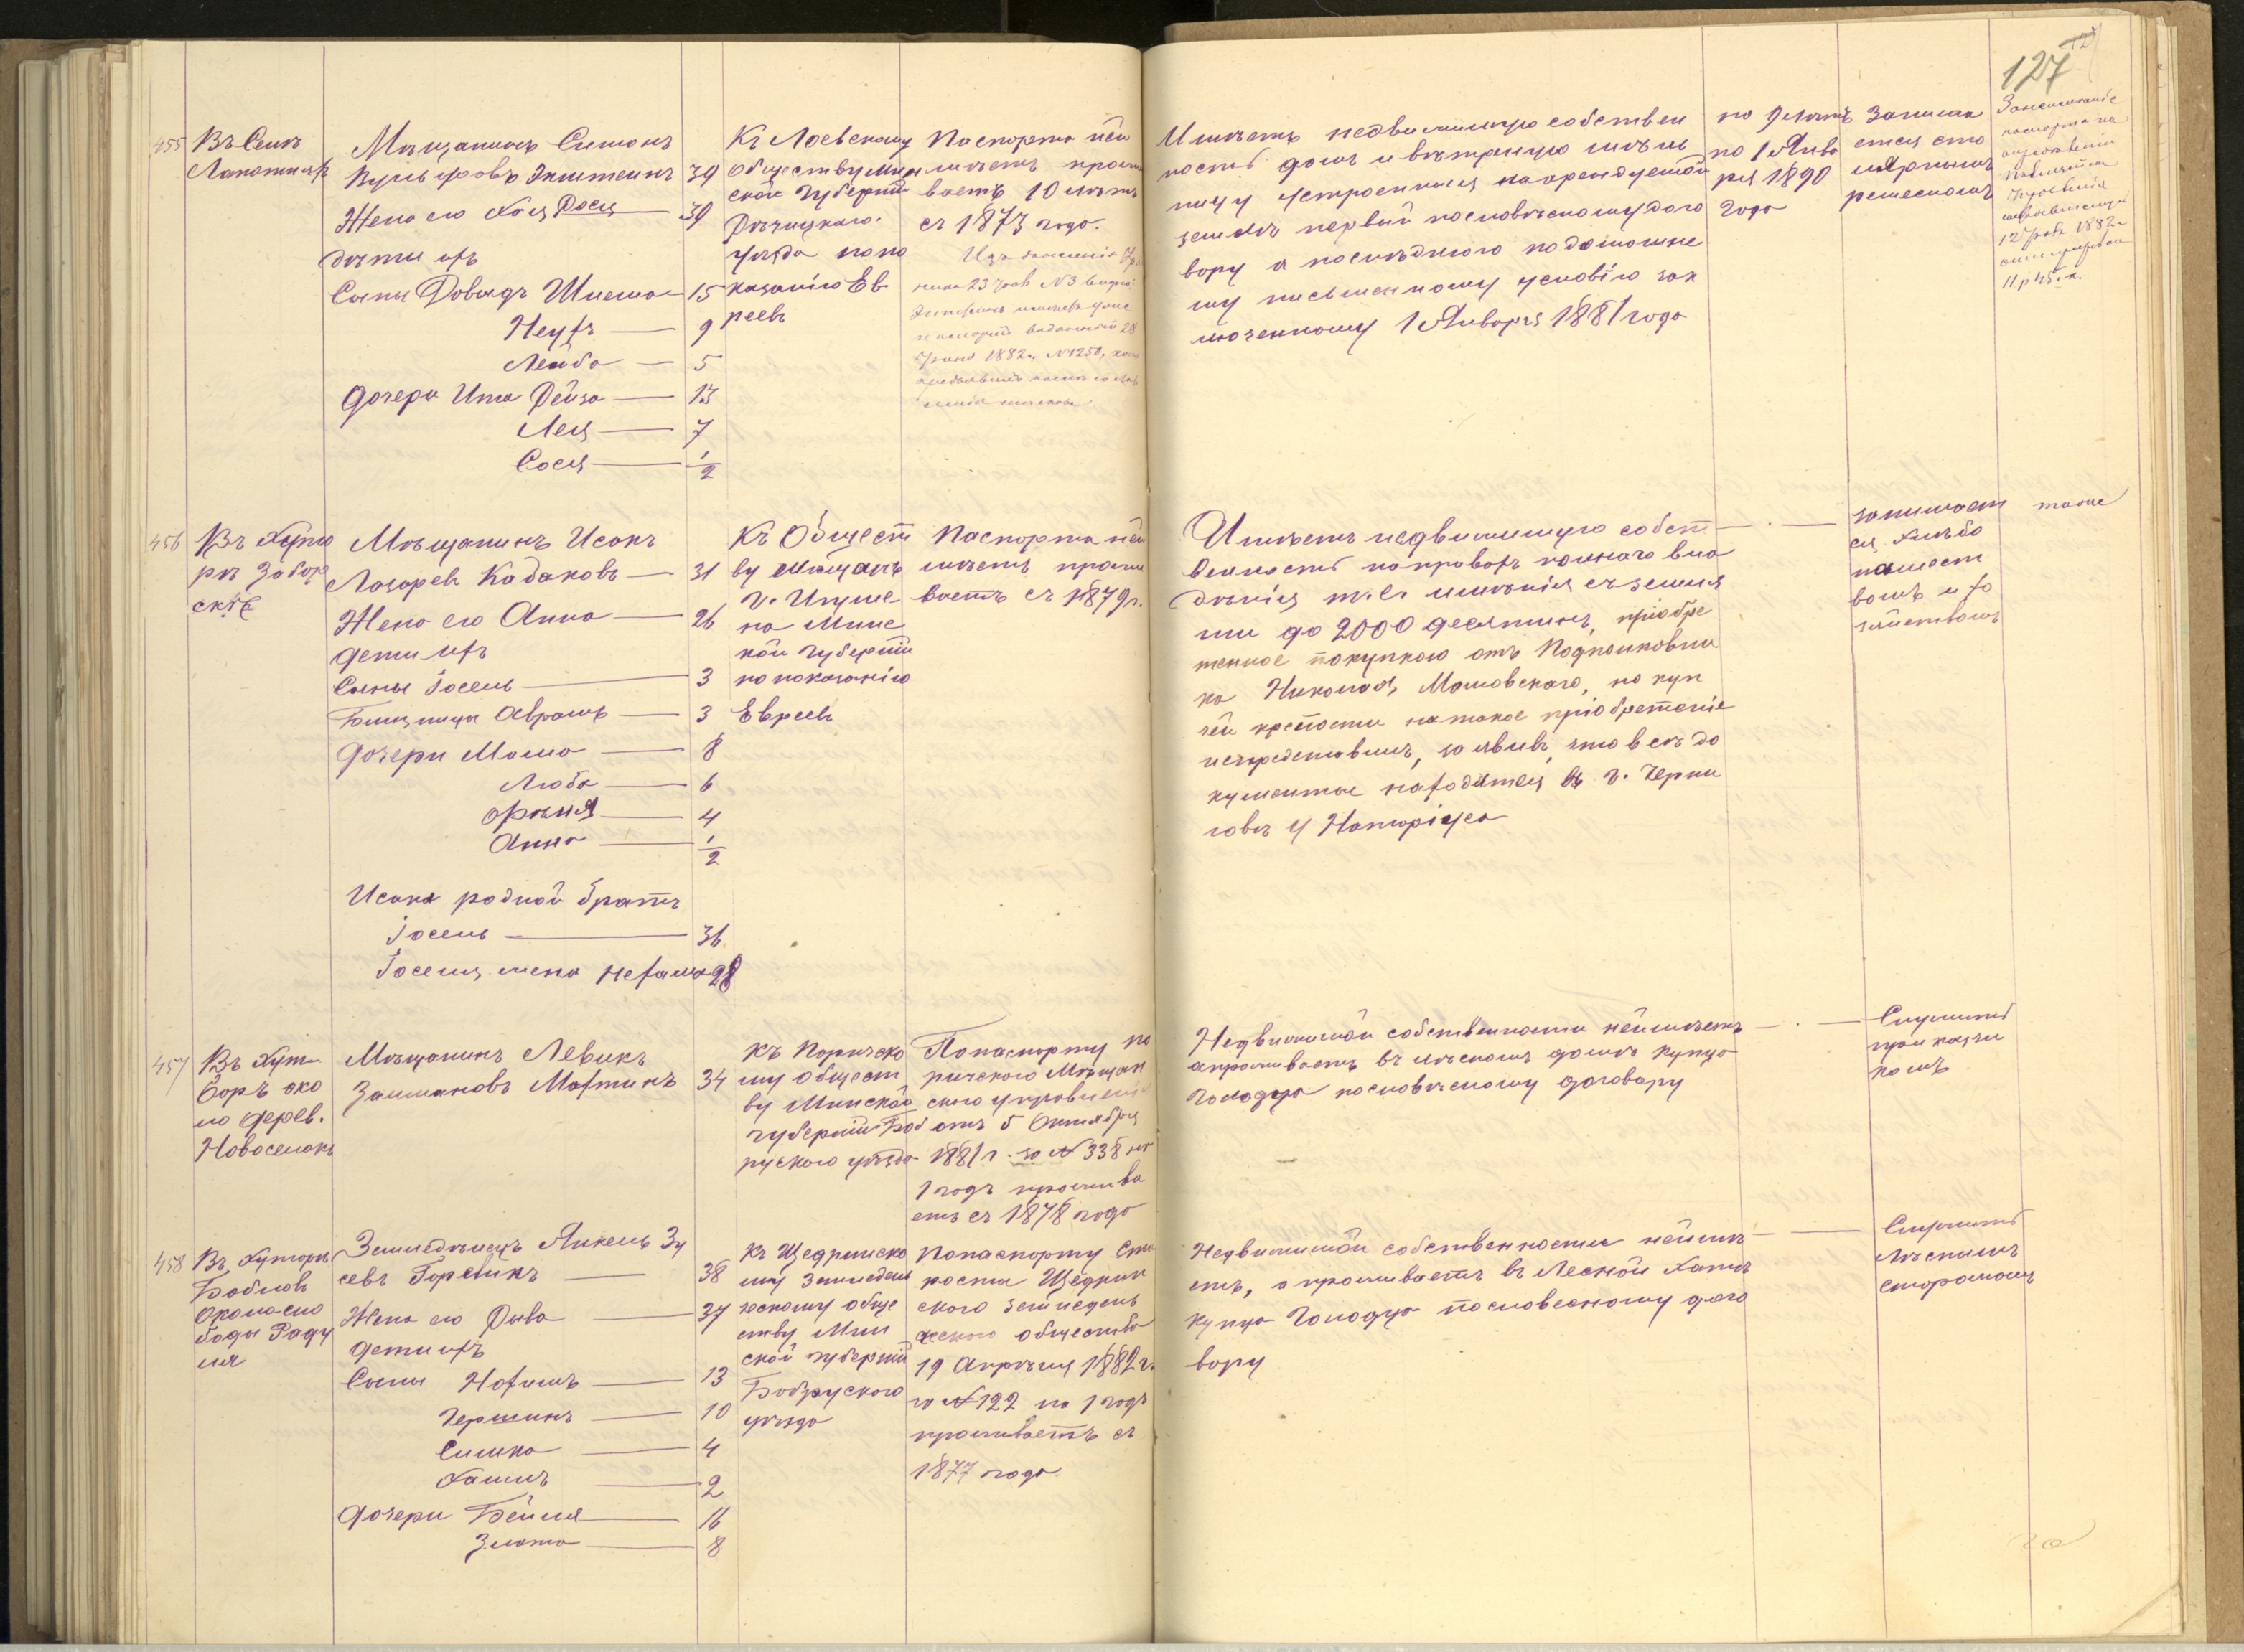 127
455
Въ Селѣ
Мѣщанинъ Симонъ
Вульфовъ Эпштеинъ 39
Жена его Хая Рося 39
дѣти ихъ
Сыны Довыдъ Шлема 15
Неухъ 9
Лейба 5
Дочери Ита Рейза 13
Лея 7
Сося 1/2
Къ Лоевскому
Обществу Мин
ской Губерніи
Рѣчицкаго
уѣзда попо
казанію Ев
реевъ
Паспорта неи
мѣетъ прожи
ваетъ 10 лѣтъ
съ 1873 года.
1882 г. №1250,
Имѣетъ недвижимую собствен
ность домъ и вѣтряную мѣль
ницу устроенныя наарендуемой
землѣ первый пословѣсному дого
вору а послѣдняго подомашне
му письменному условію зак
люченному 1 Января 1881 года
на 9 лѣтъ
по 1 Янва
ря 1890
года
Занима
ется сто
лярнымъ
ремесломъ
456
Въ Хуто
рѣ Забор
скіе
Мѣщанинъ Исакъ
Лазаревъ Кадаковъ 31
Жена его Анна 26
дети ихъ
Сыны Іосель 3
Близницы Аврамъ 3
Дочери Маша 8
Люба 6
Фрѣня 4
Анна 1/2
Исака родной братъ
Іосель 36
Іоселя жена Нехама 28
Къ Общест
ву Мещанъ
г. Игуме
на Минс
кой губерніи
по показанію
Евреевъ
Паспорта неи
мѣетъ прожи
ваетъ съ 1879 г.
Имѣетъ недвижимую собст
венность направахъ полнаго вла
дѣнія т.е. имѣнія съ земля
ми до 2000 десятинъ, пріобре
тенное покупкою отъ Подполковни
ка Николая Машовскаго, но куп
чей крепости на такое пріобретеніе
непредставилъ, заявивъ, что всѣ до
кументы находятся въ г. Черни
говѣ у Нотаріуса
занимает
ся хлѣбо
пашест
вомъ и хо
зяйствомъ
тоже
457
Въ Хут
Боръ око
ло дерев.
Новоселокъ
Мѣщанинъ Левикъ
Залмановъ Махтинъ 34
Къ Паричско
му общест
ву Минской
губерніи Боб
руского уѣзда
Попаспорту Па
ричского Мѣщан
ского управленія
отъ 5 Октября
1881 г. за №338 на
1 годъ прожива
етъ съ 1878 года
Недвижимой собственности неимѣетъ
апроживаетъ въ лѣсномъ домѣ купца
Голодца пословѣсному договару
Служитъ
приказчи
комъ
458
Въ Хуторѣ
Бабловъ
около сло
боды Раду
ля
Земледѣлецъ Янкель Зу
севъ Гореликъ 38
Жена его Рыва 37
дети ихъ
Сыны Нохимъ 13
Гершинъ 10
Симка 4
Хаимъ 2
Дочери Бейля 16
Злата 8
Къ Щедринско
му Земледель
ческому обще
ству Мин
ской губерніи
Бобруского
уѣзда
Попаспорту Ста
росты Щедрин
ского земледель
ческого общества
19 Апрѣля 1882 г.
за №122 на 1 годъ
проживаетъ съ
1877 года.
Недвижимой собственности неимѣ
етъ, а проживаетъ въ Лесной Хатѣ
купца Голодца пословесному дого
вору
Служитъ
Лѣснымъ
сторожомъ